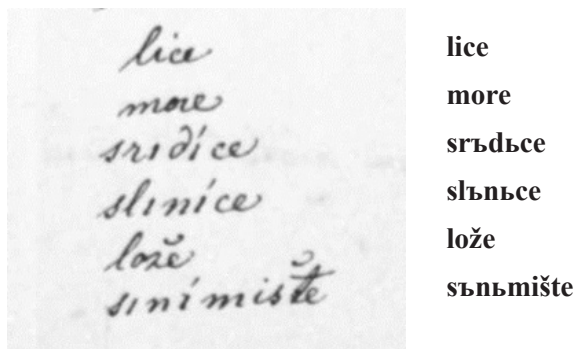 lice
more
srıdíce
slıníce
lože
sınímište
lice
more
srъdьce
slъnьce
lože
sъnьmište